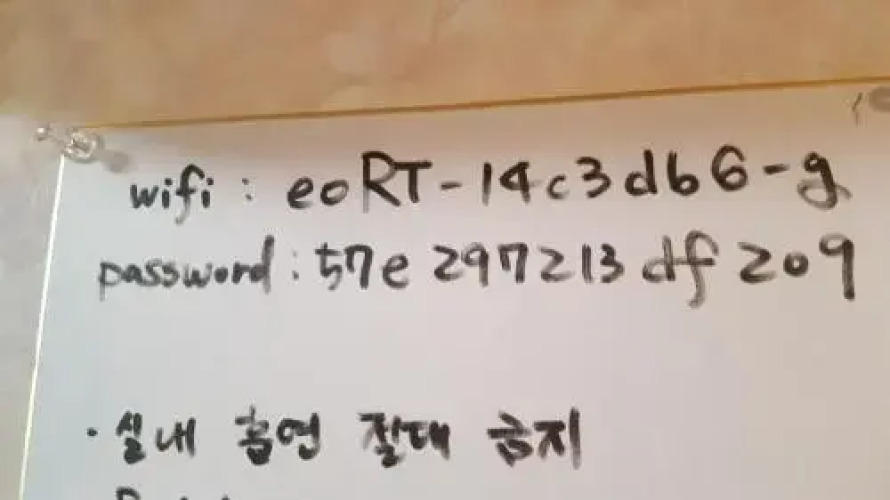 wifi : eoRT-14c3db6-g
password : 57e297213df209
·실내 흡연 절대 금지